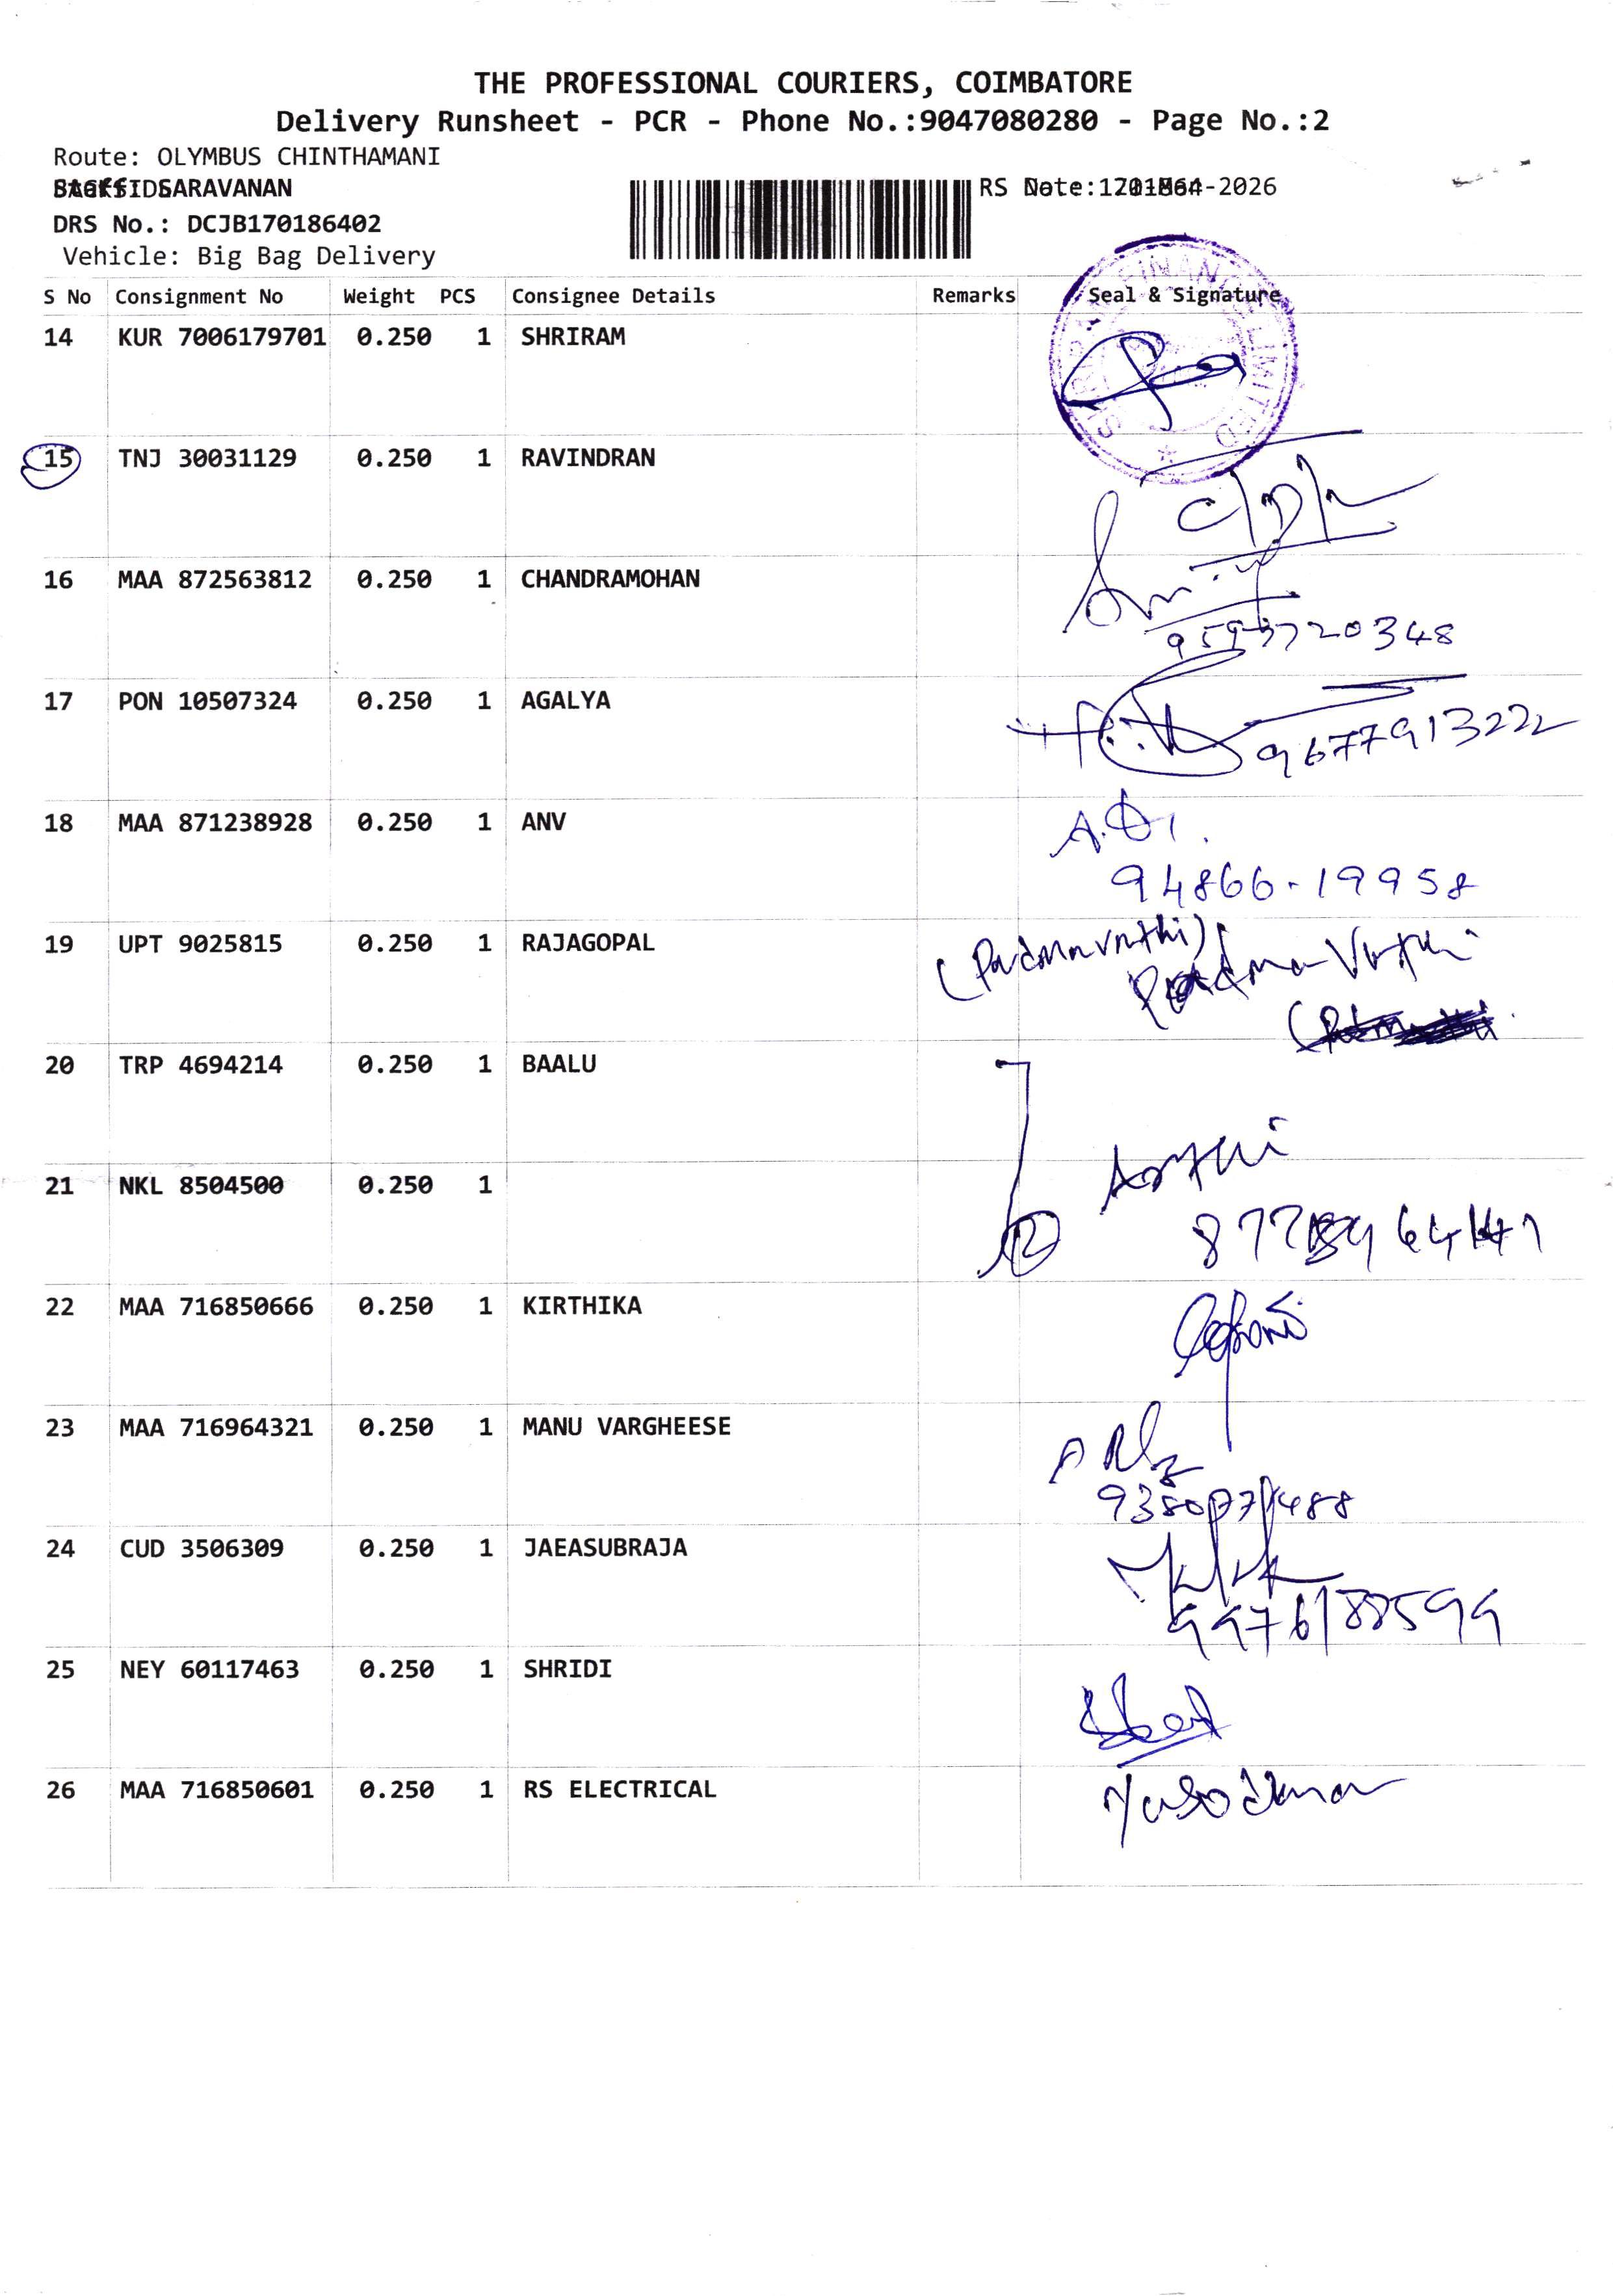 THE PROFESSIONAL COURIERS, COIMBATORE
Delivery Runsheet - PCR - Phone No.:9047080280 - Page No.:2
Route: OLYMBUS CHINTHAMANI
SARAVANAN
RS -2026
DRS No.: DCJB170186402
Vehicle: Big Bag Delivery
S No Consignment No Weight PCS Consignee Details Remarks Seal & Signature
14 KUR 7006179701 0.250 1 SHRIRAM
15 TNJ 30031129 0.250 1 RAVINDRAN
16 MAA 872563812 0.250 1 CHANDRAMOHAN
17 PON 10507324 0.250 1 AGALYA
9677913222
18 MAA 871238928 0.250 1 ANV
94866-19958
19 UPT 9025815 0.250 1 RAJAGOPAL
(Padmavathi)
20 TRP 4694214 0.250 1 BAALU
21 NKL 8504500 0.250 1
2
22 MAA 716850666 0.250 1 KIRTHIKA
23 MAA 716964321 0.250 1 MANU VARGHEESE
24 CUD 3506309 0.250 1 JAEASUBRAJA
9976188599
25 NEY 60117463 0.250 1 SHRIDI
26 MAA 716850601 0.250 1 RS ELECTRICAL